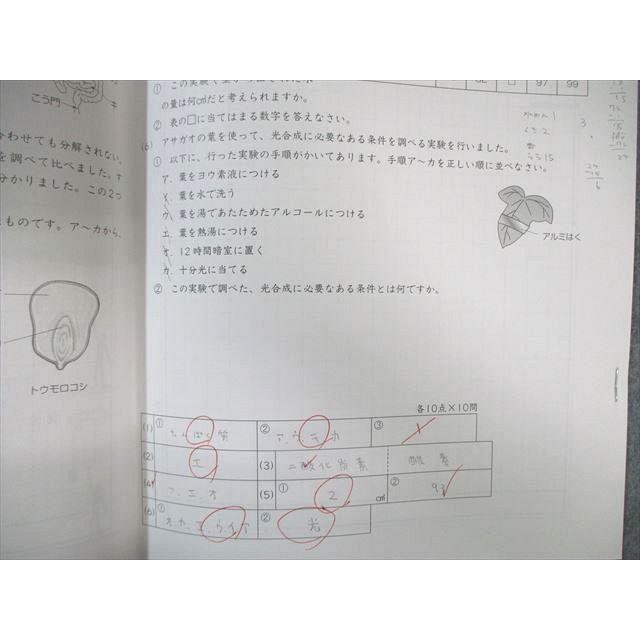 こう門
わせても分解されない。
を調べて比べました。す
分かりました。この2つ
ものです。ア〜カから、
トウモロコシ
の量は何cm³だと考えられますか。
② 表の□に当てはまる数字を答えなさい。
97 99
(6) アサガオの葉を使って、光合成に必要なある条件を調べる実験を行いました。
① 以下に、行った実験の手順がかいてあります。手順ア〜カを正しい順に並べなさい。
ア. 葉をヨウ素液につける
イ. 葉を水で洗う
ウ. 葉を湯であたためたアルコールにつける
エ. 葉を熱湯につける
オ. 12時間暗室に置く
カ. 十分光に当てる
アルミはく
② この実験で調べた、光合成に必要なある条件とは何ですか。
各10点×10問
(1) ① ② ③
(2) エ (3) 二酸化炭素 酸素
(4) (5) ① 2 cm³ ② 93
(6) ① オ.カ.エ.ウ.イ.ア ② 光